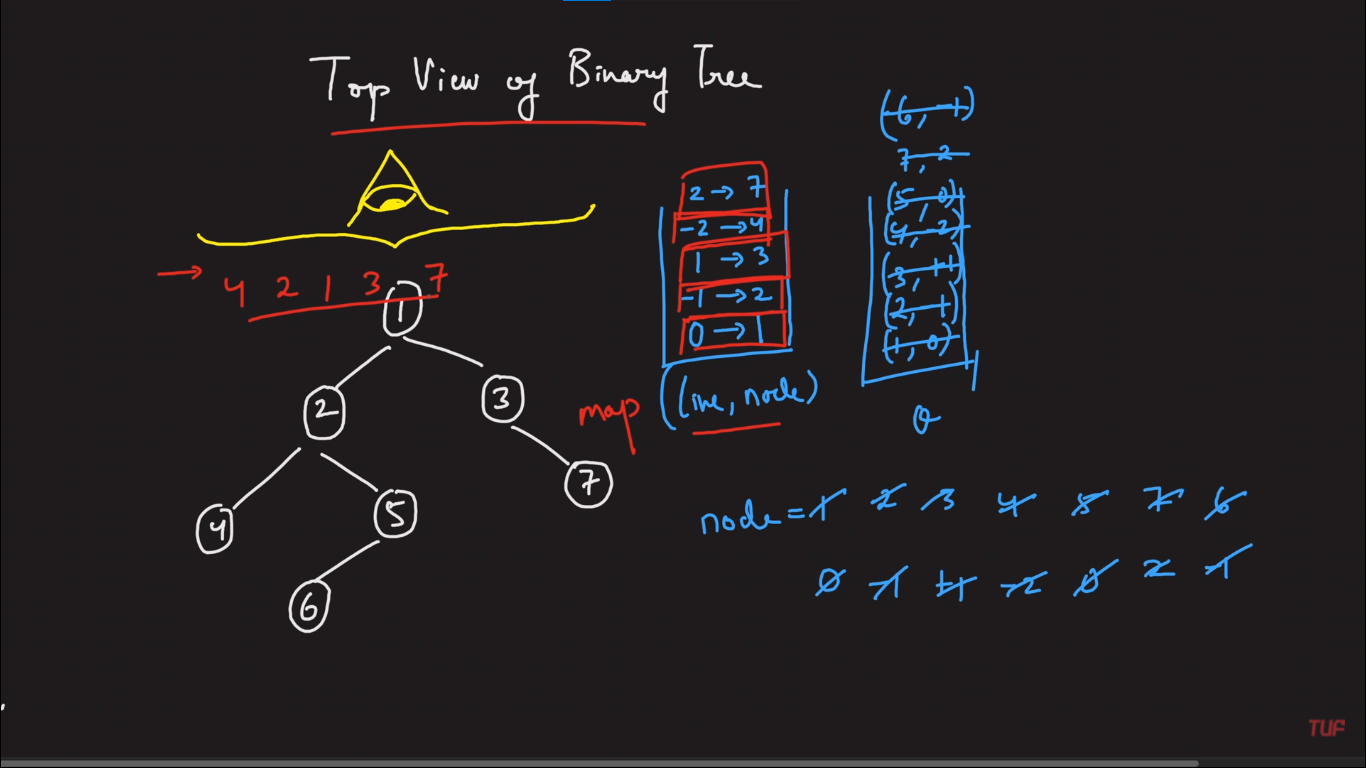 Top View of Binary Tree
4 2 1 3 7
1
2
3
4
5
7
6
map
2 → 7
-2 → 4
1 → 3
-1 → 2
0 → 1
(line, node)
(6, -1)
7, 2
(5, 0)
(4, -2)
(3, +1)
(2, -1)
(1, 0)
Q
node = 1 2 3 4 5 7 6
0 -1 +1 -2 0 2 -1
TUF